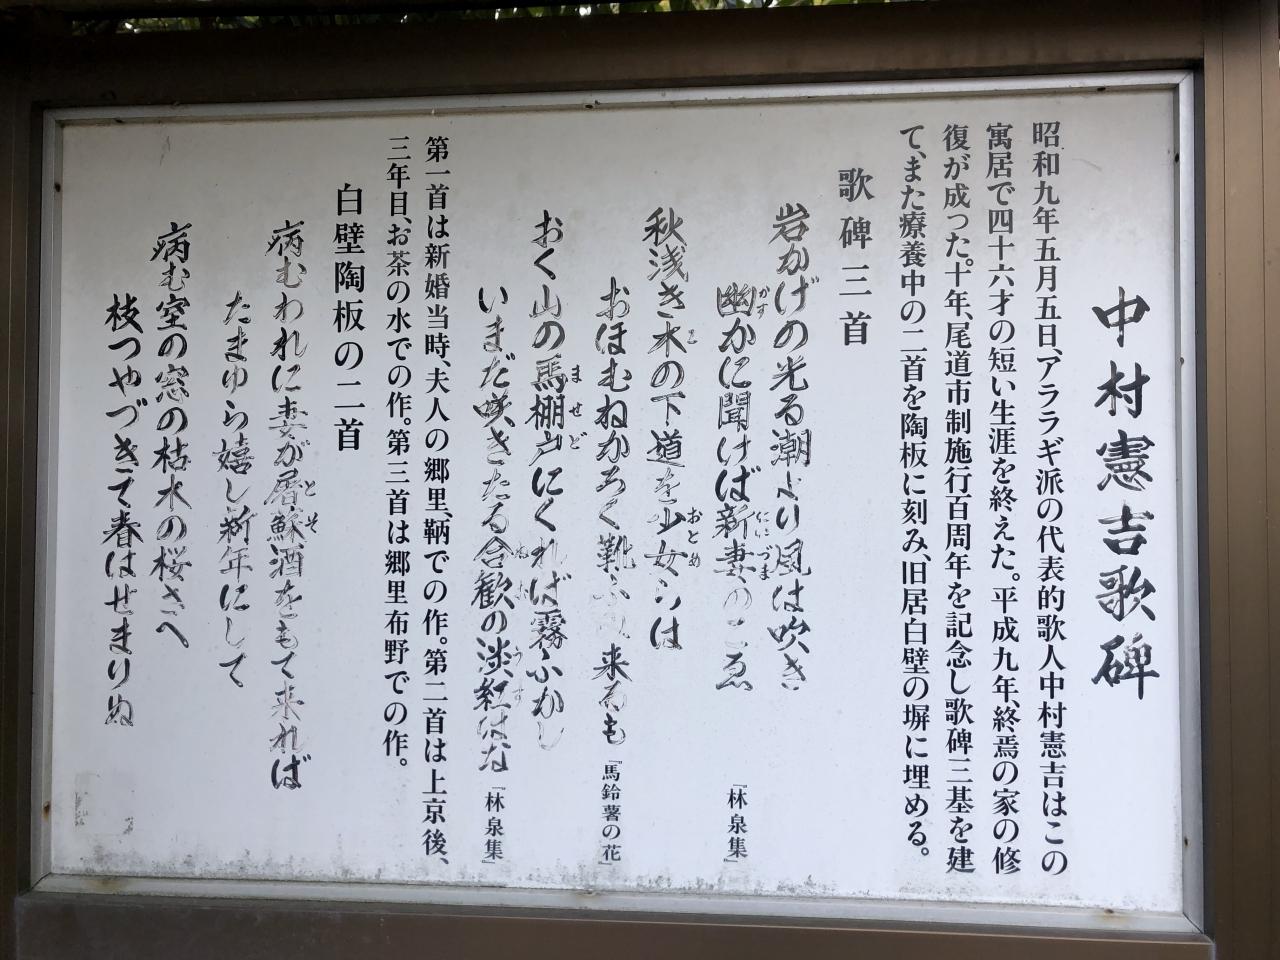 中村憲吉歌碑
昭和九年五月五日、アララギ派の代表的歌人中村憲吉はこの
寓居で四十六才の短い生涯を終えた。平成九年、終焉の家の修
復が成つた。十年、尾道市制施行百周年を記念し歌碑三基を建
て、また療養中の二首を陶板に刻み、旧居白壁の塀に埋める。
歌碑三首
岩かげの光る潮より風は吹き
幽かに聞けば新妻のこゑ
かす
にいづま
『林泉集』
秋浅き木の下道を少女らは
こ
おとめ
おほむねかろく靴ふみ来るも
『馬鈴薯の花』
おく山の馬棚戸にくれば霧ふかし
ませど
いまだ咲きたる合歓の淡紅はな
ねむ
うす
『林泉集』
第一首は新婚当時、夫人の郷里、鞆での作。第二首は上京後、
三年目、お茶の水での作。第三首は郷里布野での作。
白壁陶板の二首
病むわれに妻が屠蘇酒をもて来れば
とそ
たまゆら嬉し新年にして
病む室の窓の枯木の桜さへ
枝つやづきて春はせまりぬ